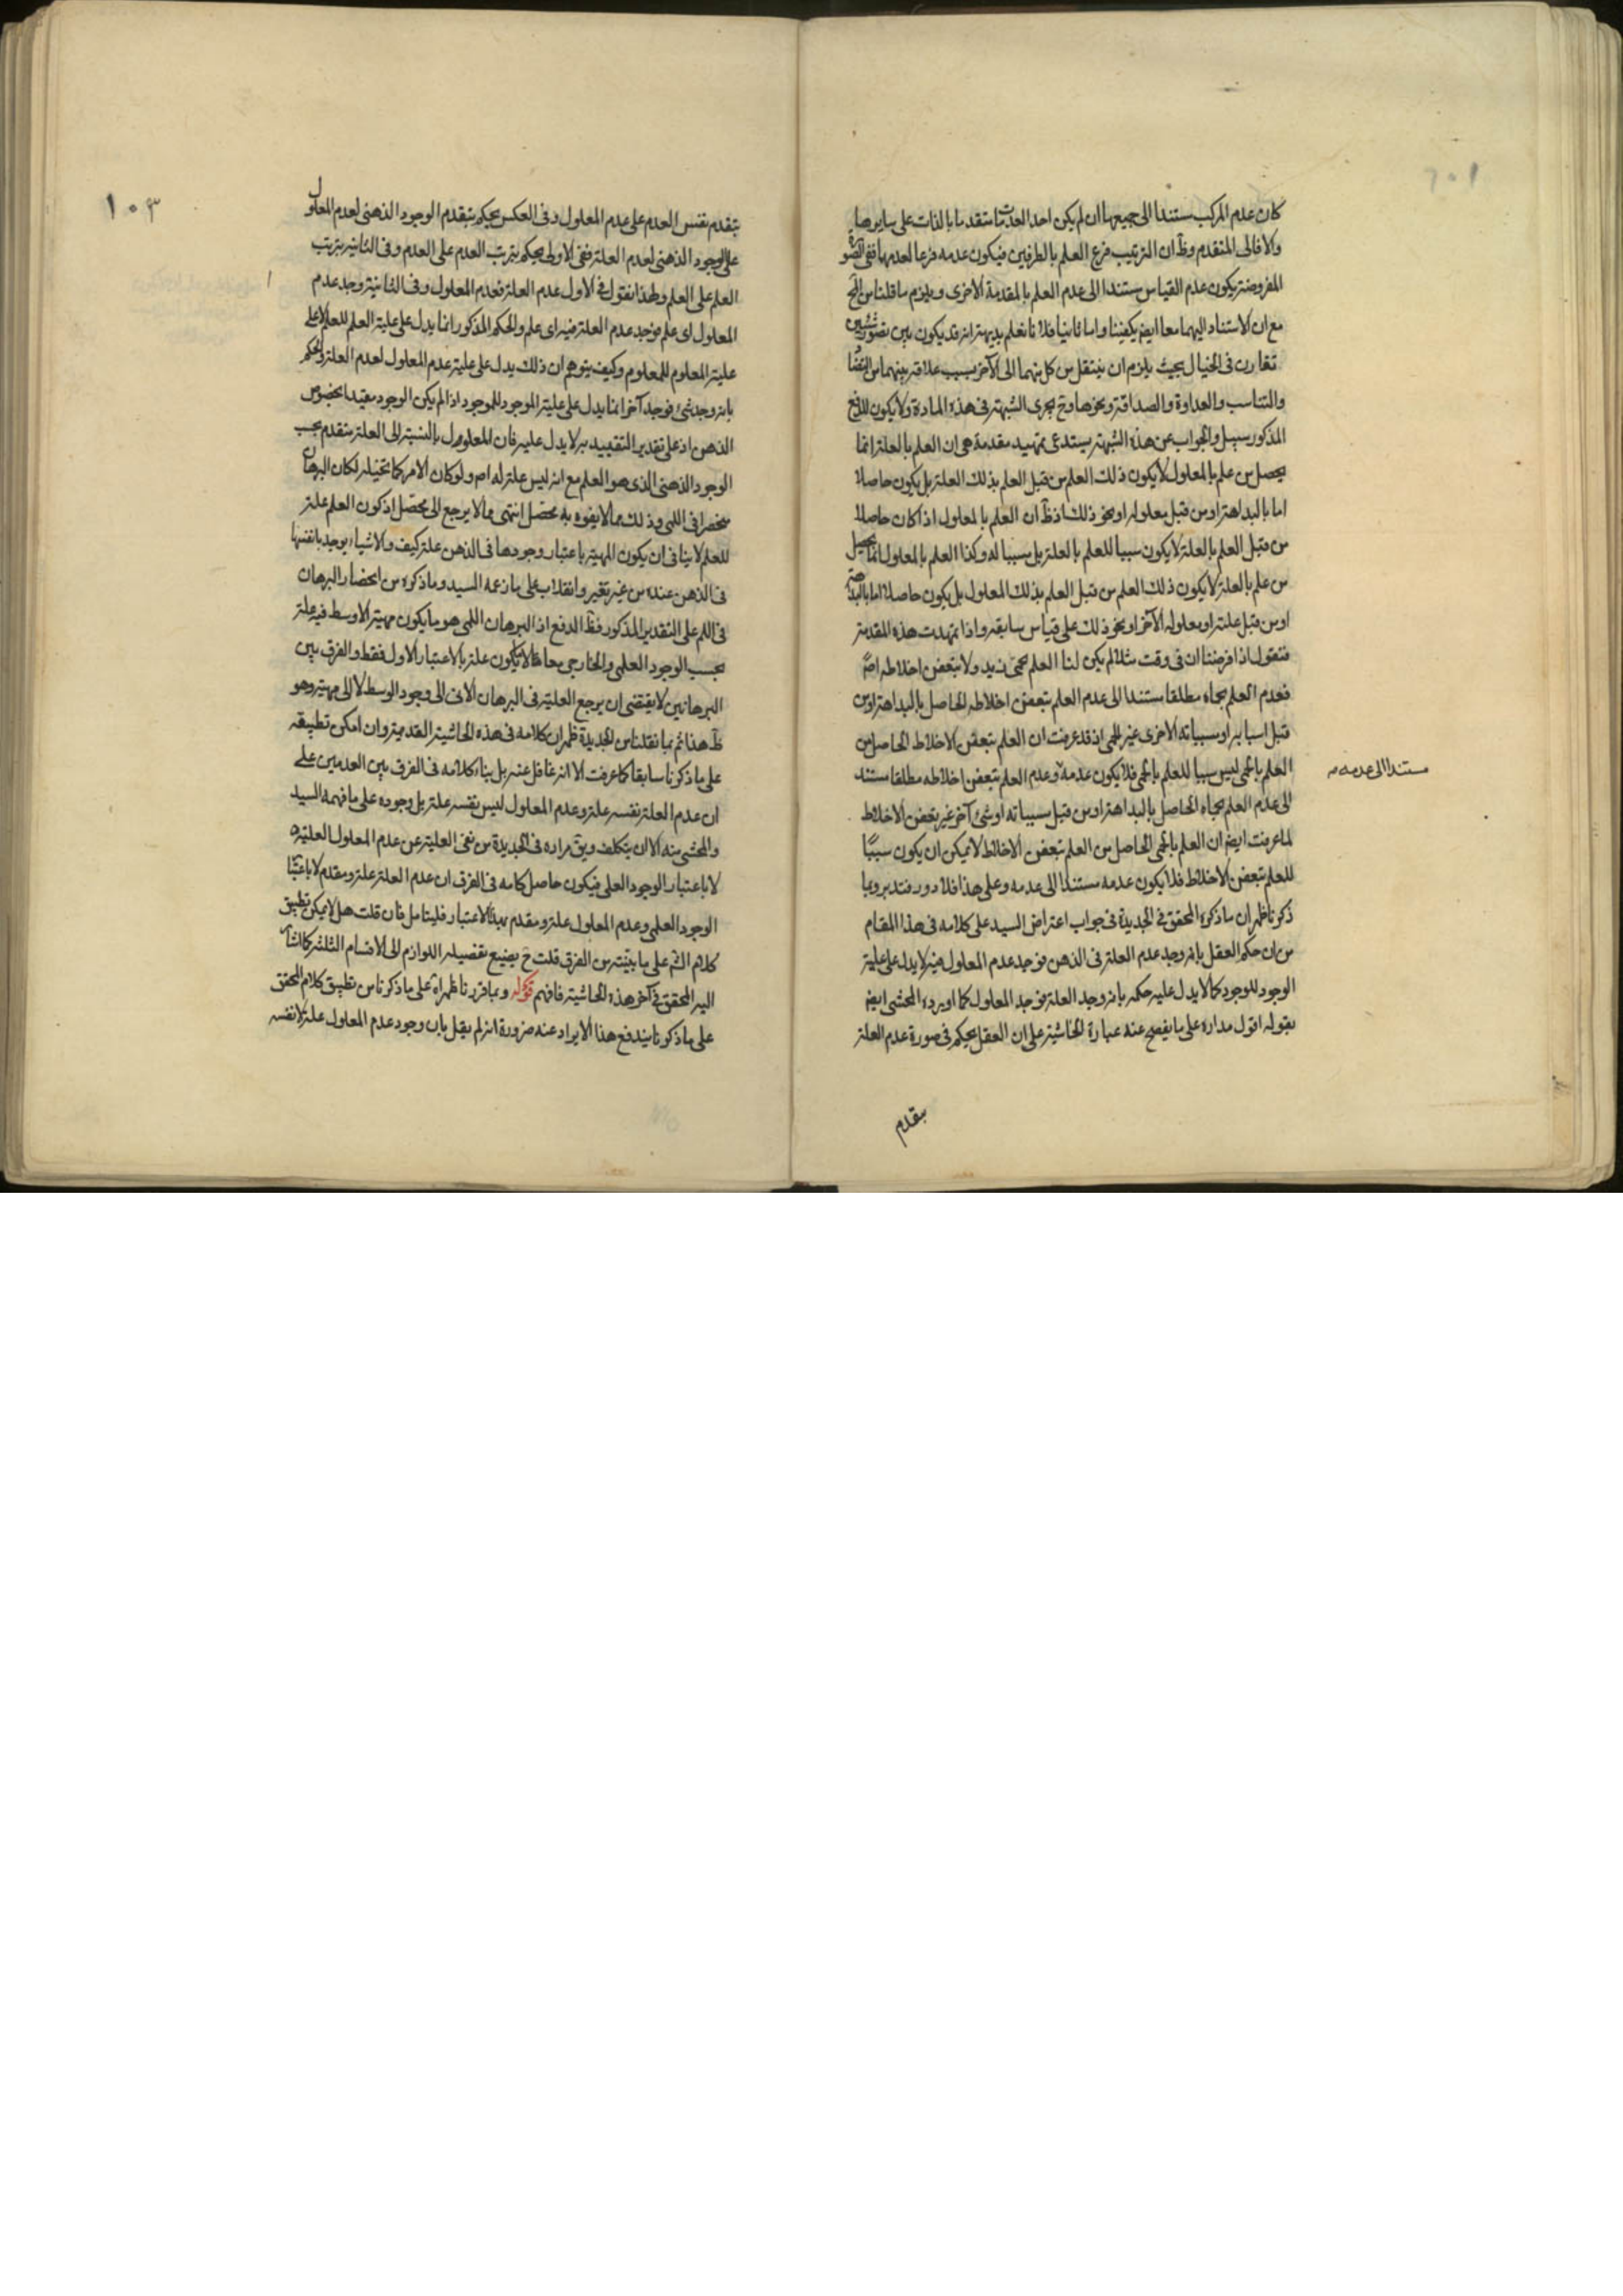 كان عدم المركب مستندا الى جميعها ان لم يكن احد العدمات متقدما بالذات على سايرها
والا فالى المتقدم وظ ان الترتيب فرع العلم بالطرفين فيكون عدمه فرعا لعدمها ففى الصورة
المفروضة يكون عدم القياس مستندا الى عدم العلم بالمقدمة الاخرى ويلزم ما قلنا من
مع ان الاستناد اليهما معا ايضا يكفينا واما ثانيا فلانا نعلم بديهة انه قد يكون بين تصور شيئين
تقارن فى الخيال بحيث يلزم ان ينتقل من كل منهما الى الآخر بسبب علاقة بينهما من التضاد
والتناسب والعداوة والصداقة ونحوها وح يجرى الشبهة فى هذه المادة ولا يكون للدفع
المذكور سبيل والجواب عن هذه الشبهة يستدعى تمهيد مقدمة هى ان العلم بالعلة انما
يحصل من علم بالمعلول لا يكون ذلك العلم من قبل العلم بذلك العلة بل يكون حاصلا
اما بالبداهة او من قبل معلوله او نحو ذلك اذ ظ ان العلم بالمعلول اذا كان حاصلا
من قبل العلم بالعلة لا يكون سببا للعلم بالعلة بل مسببا له وكذا العلم بالمعلول انما يحصل
من علم بالعلة لا يكون ذلك العلم من قبل العلم بذلك المعلول بل يكون حاصلا اما بالبداهة
او من قبل علته او معلوله الآخر او نحو ذلك على قياس سابقه واذا تمهدت هذه المقدمة
فنقول اذا فرضنا ان فى وقت مثلا لم يكن لنا العلم بحمى زيد ولا بتعفن اخلاطه اصلا
فعدم العلم بحماه مطلقا مستندا الى عدم العلم بتعفن اخلاطه الحاصل بالبداهة او من
قبل اسبابه او مسبباته الاخرى غير الحمى اذ قد عرفت ان العلم بتعفن الاخلاط الحاصل من
العلم بالحمى ليس سببا للعلم بالحمى فلا يكون عدمه وعدم العلم بتعفن اخلاطه مطلقا مستند
مستندا الى عدمه
الى عدم العلم بحماه الحاصل بالبداهة او من قبل مسبباته او شئ آخر غير تعفن الاخلاط
لما عرفت ايضا ان العلم بالحمى الحاصل من العلم بتعفن الاخلاط لا يمكن ان يكون سببا
للعلم بتعفن الاخلاط فلا يكون عدمه مستندا الى عدمه وعلى هذا فلا دور فتدبر وبما
ذكرنا ظهر ان ما ذكره المحقق فى الجديدة فى جواب اعتراض السيد على كلامه فى هذا المقام
من ان حكم العقل بانه وجد عدم العلة فى الذهن فوجد عدم المعلول فيه لا يدل على علية
الوجود للوجود كما لا يدل عليه حكمه بانه وجد العلة فوجد المعلول كما اورده المحشى ايضا
بقوله اقول مداره على ما يفصح عنه عبارة الحاشية على ان العقل يحكم فى صورة عدم العلة
بتقدم
١٠٣
بتقدم نفس العدم على عدم المعلول وفى العكس يحكم بتقدم الوجود الذهنى لعدم المعلول
على الوجود الذهنى لعدم العلة ففى الاولى يحكم بترتب العدم على العدم وفى الثانية بترتب
العلم على العلم ولهذا نقول فى الاول عدم العلة فعدم المعلول وفى الثانية وجد عدم
المعلول اى علم فوجد عدم العلة فيه اى علم والحكم المذكور انما يدل على علية العلم للعلم لا على
علية المعلوم للمعلوم وكيف يتوهم ان ذلك يدل على علية عدم المعلول لعدم العلة والحكم
بانه وجد شئ فوجد آخر انما يدل على علية الموجود للموجود اذا لم يكن الوجود مقيدا بخصوص
الذهن اذ على تقدير التقييد به لا يدل عليه فان المعلول بالنسبة الى العلة متقدم بحسب
الوجود الذهنى الذى هو العلم مع انه ليس علة له اصلا ولو كان الامر كما تخيله لكان البرهان
منحصرا فى اللمى وذلك مما لا يفوه به محصل انتهى مما لا يرجع الى محصل اذ كون العلم علة
للعلم لا ينافى ان يكون المهية باعتبار وجودها فى الذهن علة كيف والاشياء يوجد بانفسها
فى الذهن عنده من غير تغير وانقلاب على ما زعمه السيد وما ذكره من انحصار البرهان
فى اللم على التقدير المذكور فظ الدفع اذ البرهان اللمى هو ما يكون مهية الاوسط فيه علة
بحسب الوجود العلمى والخارجى معا لا ما يكون علة بالاعتبار الاول فقط والفرق بين
البرهانين لا يقتضى ان يرجع العلية فى البرهان الانى الى وجود الوسط لا الى مهيته وهو
ظ هذا ثم بما نقلنا من الجديدة ظهر ان كلامه فى هذه الحاشية القديمة وان امكن تطبيقه
على ما ذكرنا سابقا كما عرفت الا انه غافل عنه بل بناء كلامه فى الفرق بين العدمين على
ان عدم العلة نفسه علة وعدم المعلول ليس نفسه علة بل وجوده على ما فهمه السيد
والمحشى منه الا ان يتكلف ويق مراده فى الجديدة من نفى العلية عن عدم المعلول العلية
لا باعتبار الوجود العلمى فيكون حاصل كلامه فى الفرق ان عدم العلة علة ومقدم لا باعتبار
الوجود العلمى وعدم المعلول علة ومقدم بهذا الاعتبار فليتامل فان قلت هل لا يمكن تطبيق
كلام الشم على ما بينته من الفرق قلت ح يضيع تفصيله اللوازم الى الاقسام الثلثة كما اشار
اليه المحقق فى آخر هذه الحاشية فافهم قوله وبما قررنا ظهر اه على ما ذكرنا من تطبيق كلام المحقق
على ما ذكرنا يندفع هذا الايراد عنه ضرورة انه لم يقل بان وجود عدم المعلول علة لا نفسه